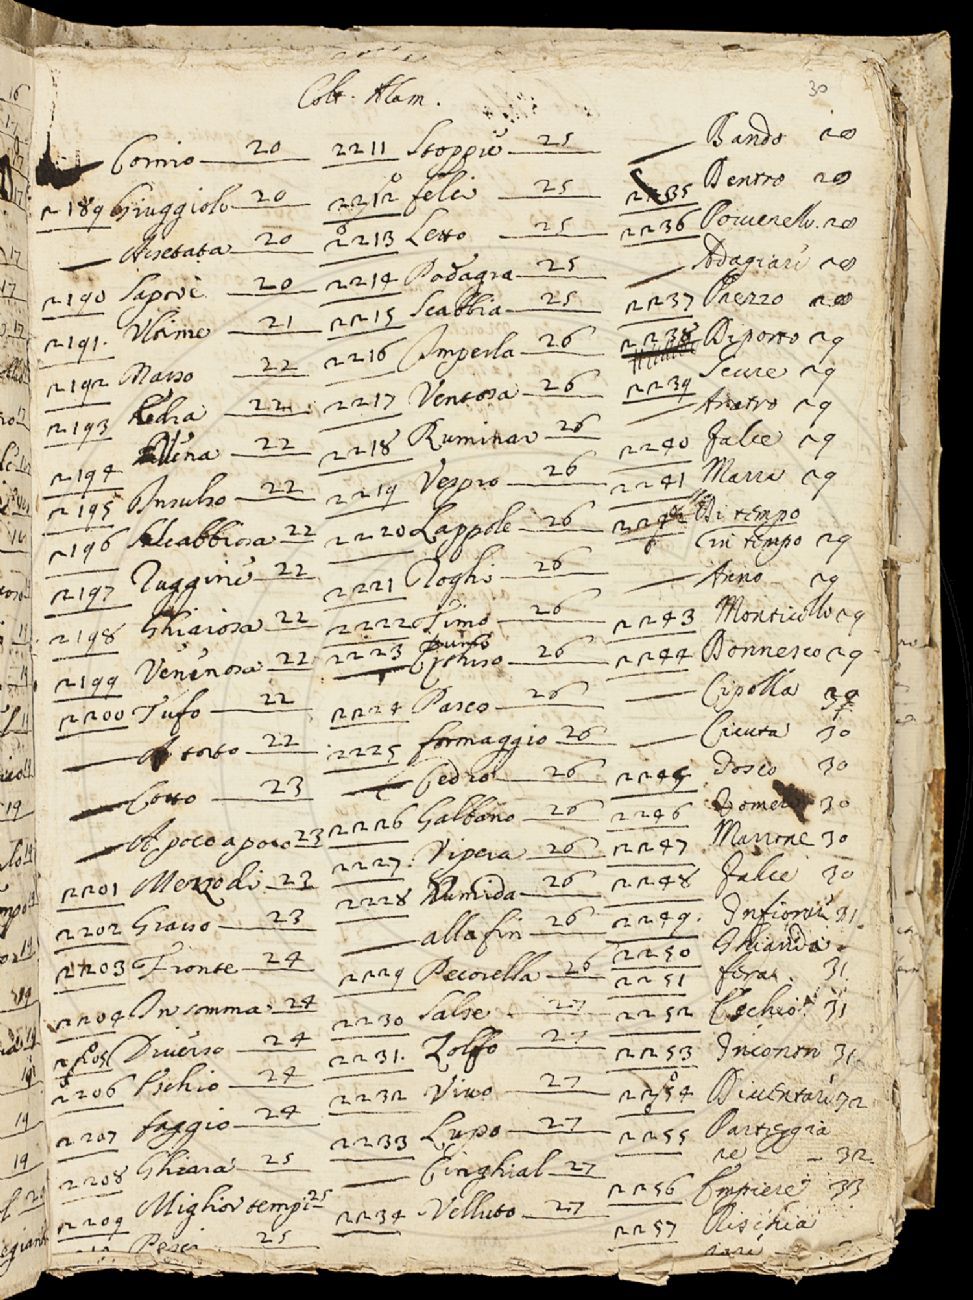 Colt. Alam.
30
Cornio 20
2189 Giuggiolo 20
Assetata 20
2190 Sapori 20
2191. Ultime 21
2192 Marso 22
2193 Ledra 22
2194 22
2195 Insulso 22
2196 Scabbiosa 22
2197 Ruggine 22
2198 Ghiaiosa 22
2199 Venenosa 22
2200 Tufo 22
A torto 22
Cotto 23
A poco a poco 23
2201 Mezzodi 23
2202 Grasso 23
2203 Fronte 24
2204 In somma 24
2205 Diverso 24
2206 Eschio 24
2207 faggio 24
2208 Ghiara 25
2209 Miglior tempi 25
Pesci 25
2211 Stoppie 25
2212 felci 25
2213 Letto 25
2214 Podagra 25
2215 Scabbia 25
2216 Imperla 26
2217 Ventosa 26
2218 Ruminar 26
2219 Vespro 26
2220 Lappole 26
2221 Roghi 26
2222 Timo 26
2223 26
2224 Pasco 26
2225 formaggio 26
Cedro 26
2226 Galbano 26
2227. Vipera 26
2228 Humida 26
alla fin 26
2229 Pecorella 26
2230 Salse 27
2231. Zolfo 27
2232 Vivo 27
2233 Lupo 27
Cinghial 27
2234 Velluto 27
Bando 28
2235 Dentro 28
2236 Poverello 28
Adagiari 28
2237 Prezzo 28
2238 Diporto 29
2239 Scure 29
Aratro 29
2240 Falce 29
2241 Marra 29
Di tempo
in tempo 29
Anno 29
2243 Monticello 29
2244 Donnesco 29
Cipolla 30
Cicuta 30
2245 Tosco 30
2246 30
2247 Marrone 30
2248 Falce 30
2249. Infiorar 31.
2250 Ghianda
2251 fera. 31
2252 Eschio 31
2253 31
2254 Diventare 32
2255 Parteggia
re 32
2256 Empiere 33
2257 Rischia
rare